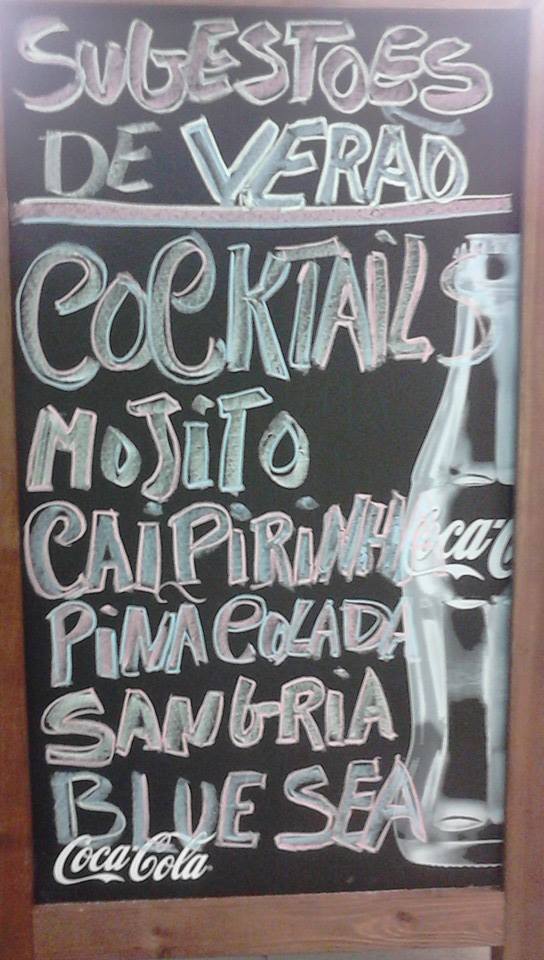 SUGESTÕES
DE VERÃO
COCKTAILS
MOJITO
CAIPIRINHA
PINA COLADA
SANGRIA
BLUE SEA
Coca-Cola
Coca-C